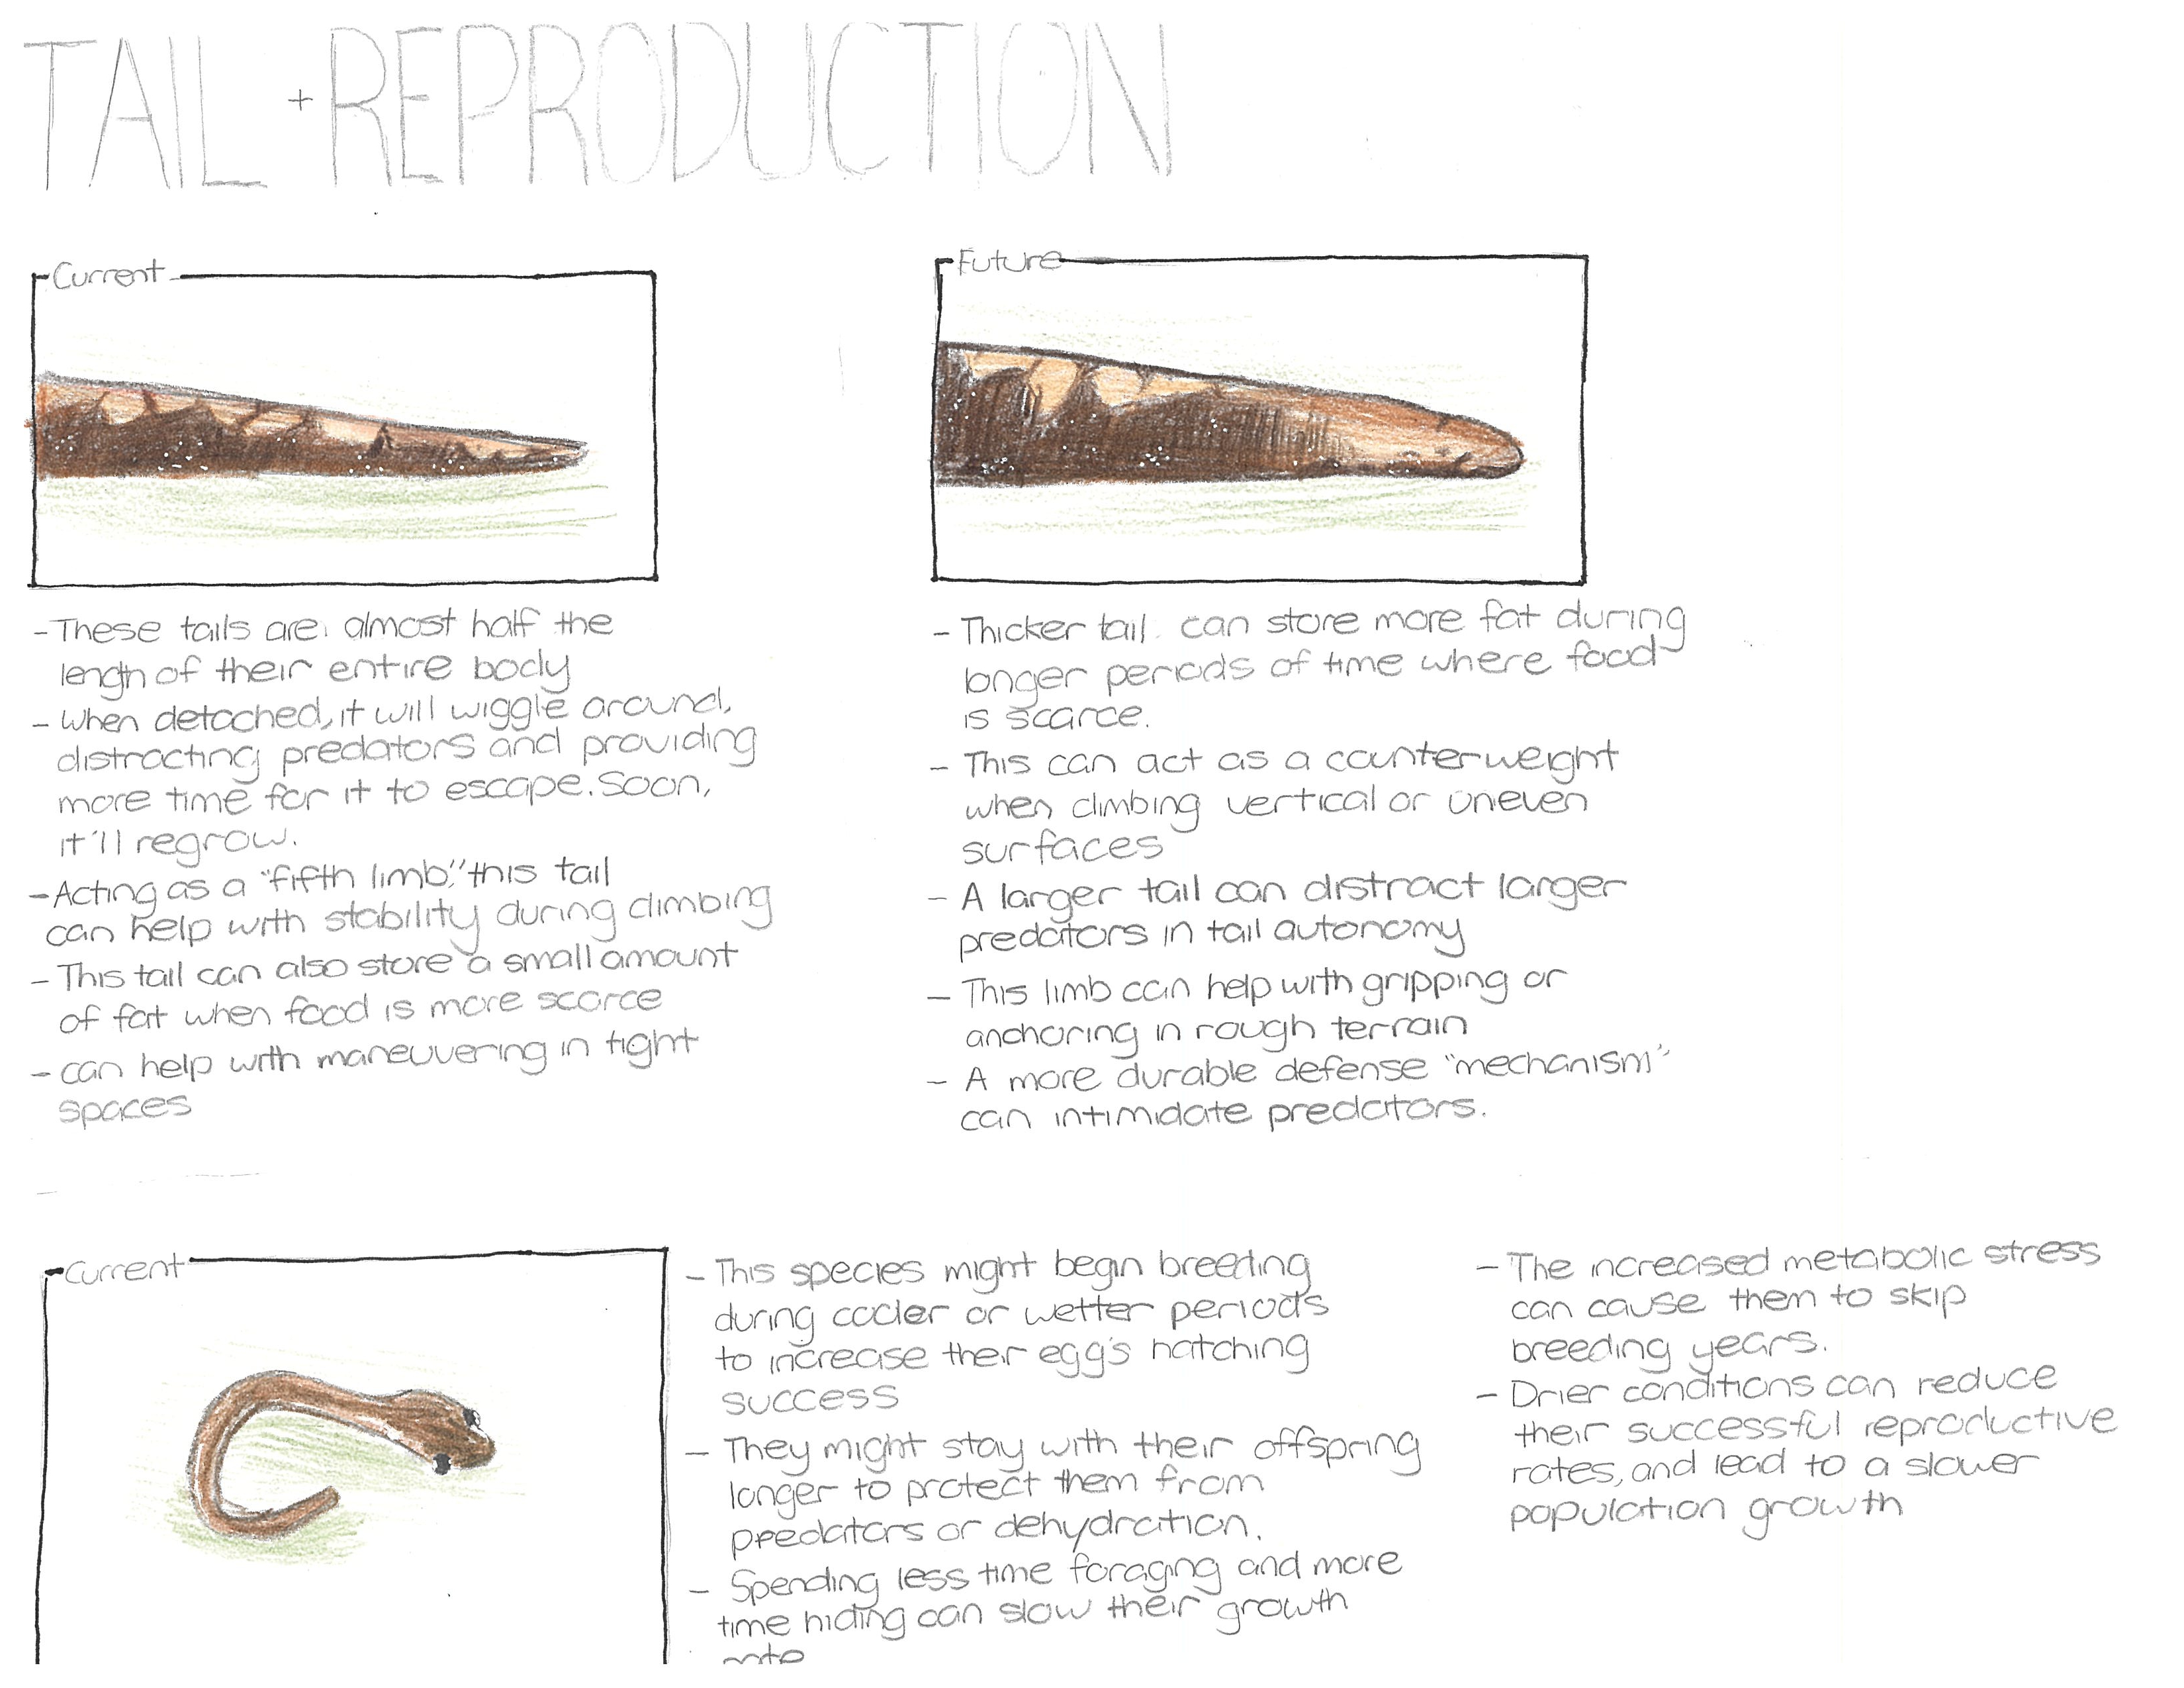 TAIL + REPRODUCTION
Current
- These tails are almost half the
length of their entire body
- When detached, it will wiggle around,
distracting predators and providing
more time for it to escape. Soon,
it'll regrow.
- Acting as a "fifth limb," this tail
can help with stability during climbing
- This tail can also store a small amount
of fat when food is more scarce
- can help with maneuvering in tight
spaces
Future
- Thicker tail can store more fat during
longer periods of time where food
is scarce.
- This can act as a counterweight
when climbing vertical or uneven
surfaces
- A larger tail can distract larger
predators in tail autonomy
- This limb can help with gripping or
anchoring in rough terrain
- A more durable defense "mechanism"
can intimidate predators.
Current
- This species might begin breeding
during cooler or wetter periods
to increase their egg's hatching
success
- They might stay with their offspring
longer to protect them from
predators or dehydration.
- Spending less time foraging and more
time hiding can slow their growth
- The increased metabolic stress
can cause them to skip
breeding years.
- Drier conditions can reduce
their successful reproductive
rates, and lead to a slower
population growth